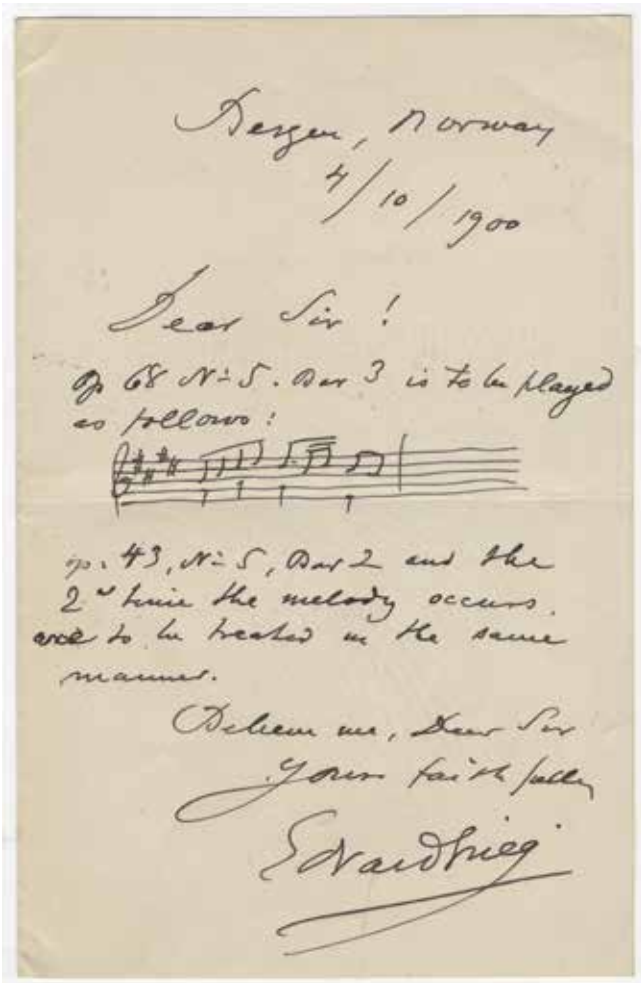 Bergen, Norway
4/10/1900
Dear Sir!
op 68 No 5. Bar 3 is to be played
as follows:
op. 43, No 5, Bar 2 and the
2d time the melody occurs,
are to be treated in the same
manner.
Believe me, Dear Sir
Yours faithfully
Edvard Grieg